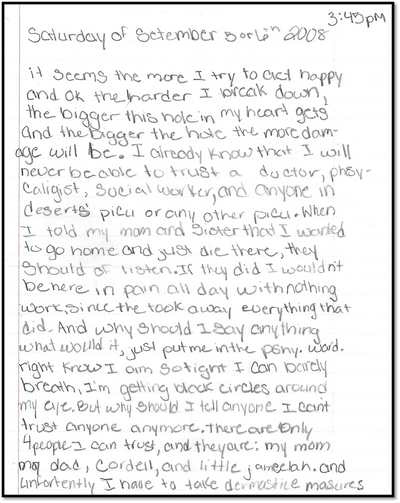 3:45pm
Saturday of Setember 5 or 6th 2008
it seems the more I try to act happy
and ok the harder I break down,
the bigger this hole in my heart gets
And the bigger the hole the more dam-
age will be. I already know that I will
never be able to trust a doctor, phsy-
caligist, social worker, and anyone in
deserts' picu or any other picu. When
I told my mom and sister that I wanted
to go home and just die there, they
should of listen. If they did I wouldn't
be here in pain all day with nothing
work, since the took away everything that
did. And why should I say anything
what would it, just put me in the psny. ward.
right know I am so tight I can barely
breath, I'm getting black circles around
my eye. But why should I tell anyone I can't
trust anyone anymore. there are only
4 people I can trust, and they are: my mom
my dad, Cordell, and little jameelah. and
unfortently I have to take dermastice masures